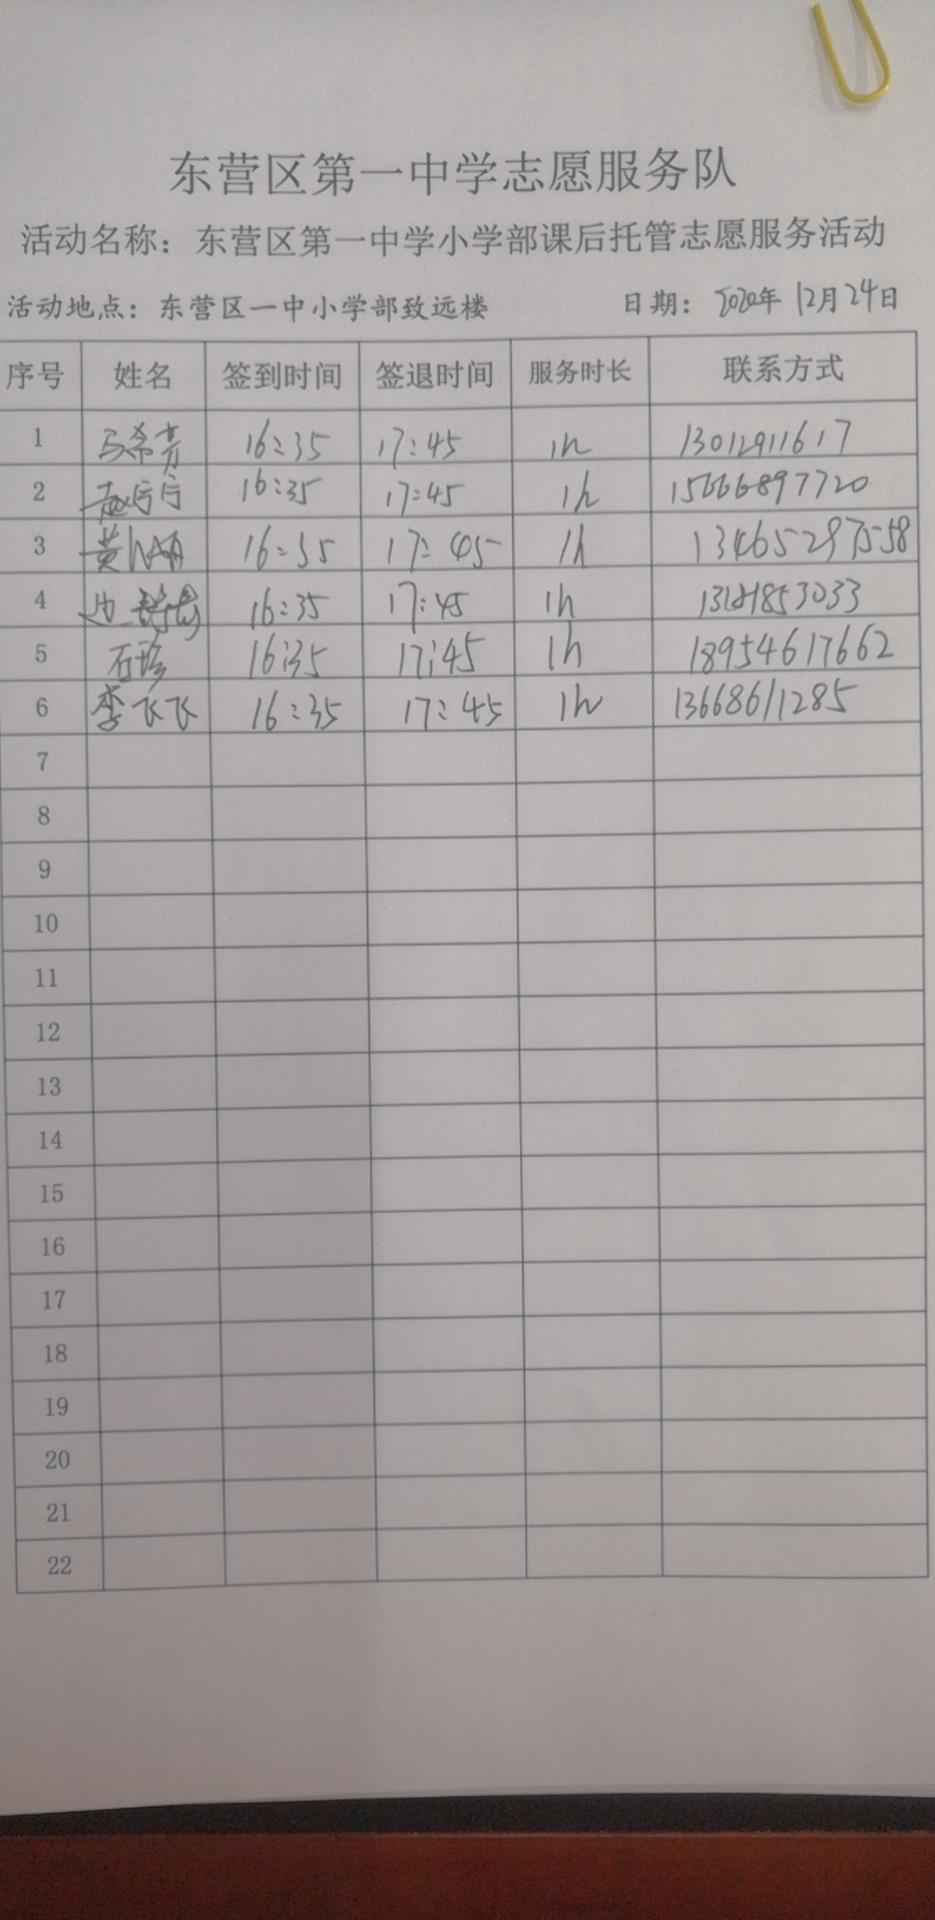 东营区第一中学志愿服务队
活动名称：东营区第一中学小学部课后托管志愿服务活动
活动地点：东营区一中小学部致远楼 日期：2020年12月24日
序号 姓名 签到时间 签退时间 服务时长 联系方式
1 马希芳 16:35 17:45 1h 13012911617
2 赵宁宁 16:35 17:45 1h 15666897720
3 黄 16:35 17:45 1h 13465297558
4 16:35 17:45 1h
5 石珍 16:35 17:45 1h 18954617662
6 李飞飞 16:35 17:45 1h 13668611285
7
8
9
10
11
12
13
14
15
16
17
18
19
20
21
22